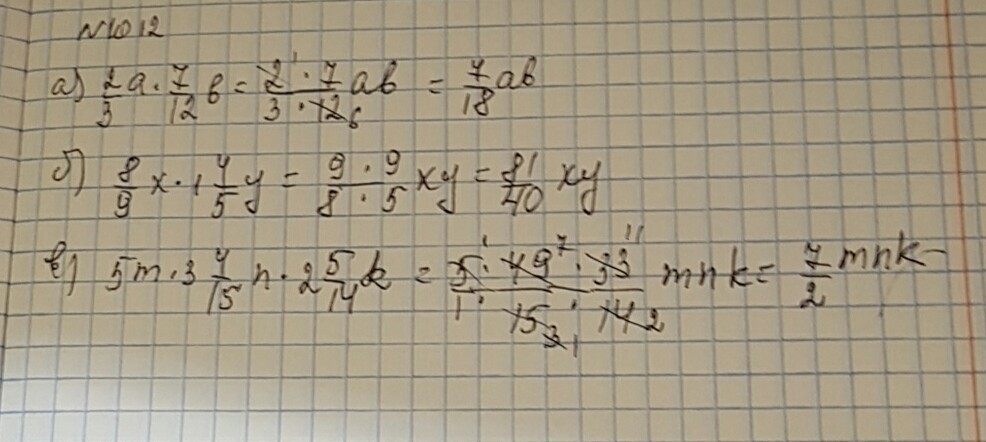 N1012
а) 2/3 a · 7/12 b = 2 · 7/3 · 12 ab = 7/18 ab
б) 8/9 x · 1 4/5 y = 9 · 9/8 · 5 xy = 81/40 xy
в) 5m · 3 4/15 n · 2 5/14 k = 5 · 49 · 33/1 · 15 · 14 mnk = 7/2 mnk